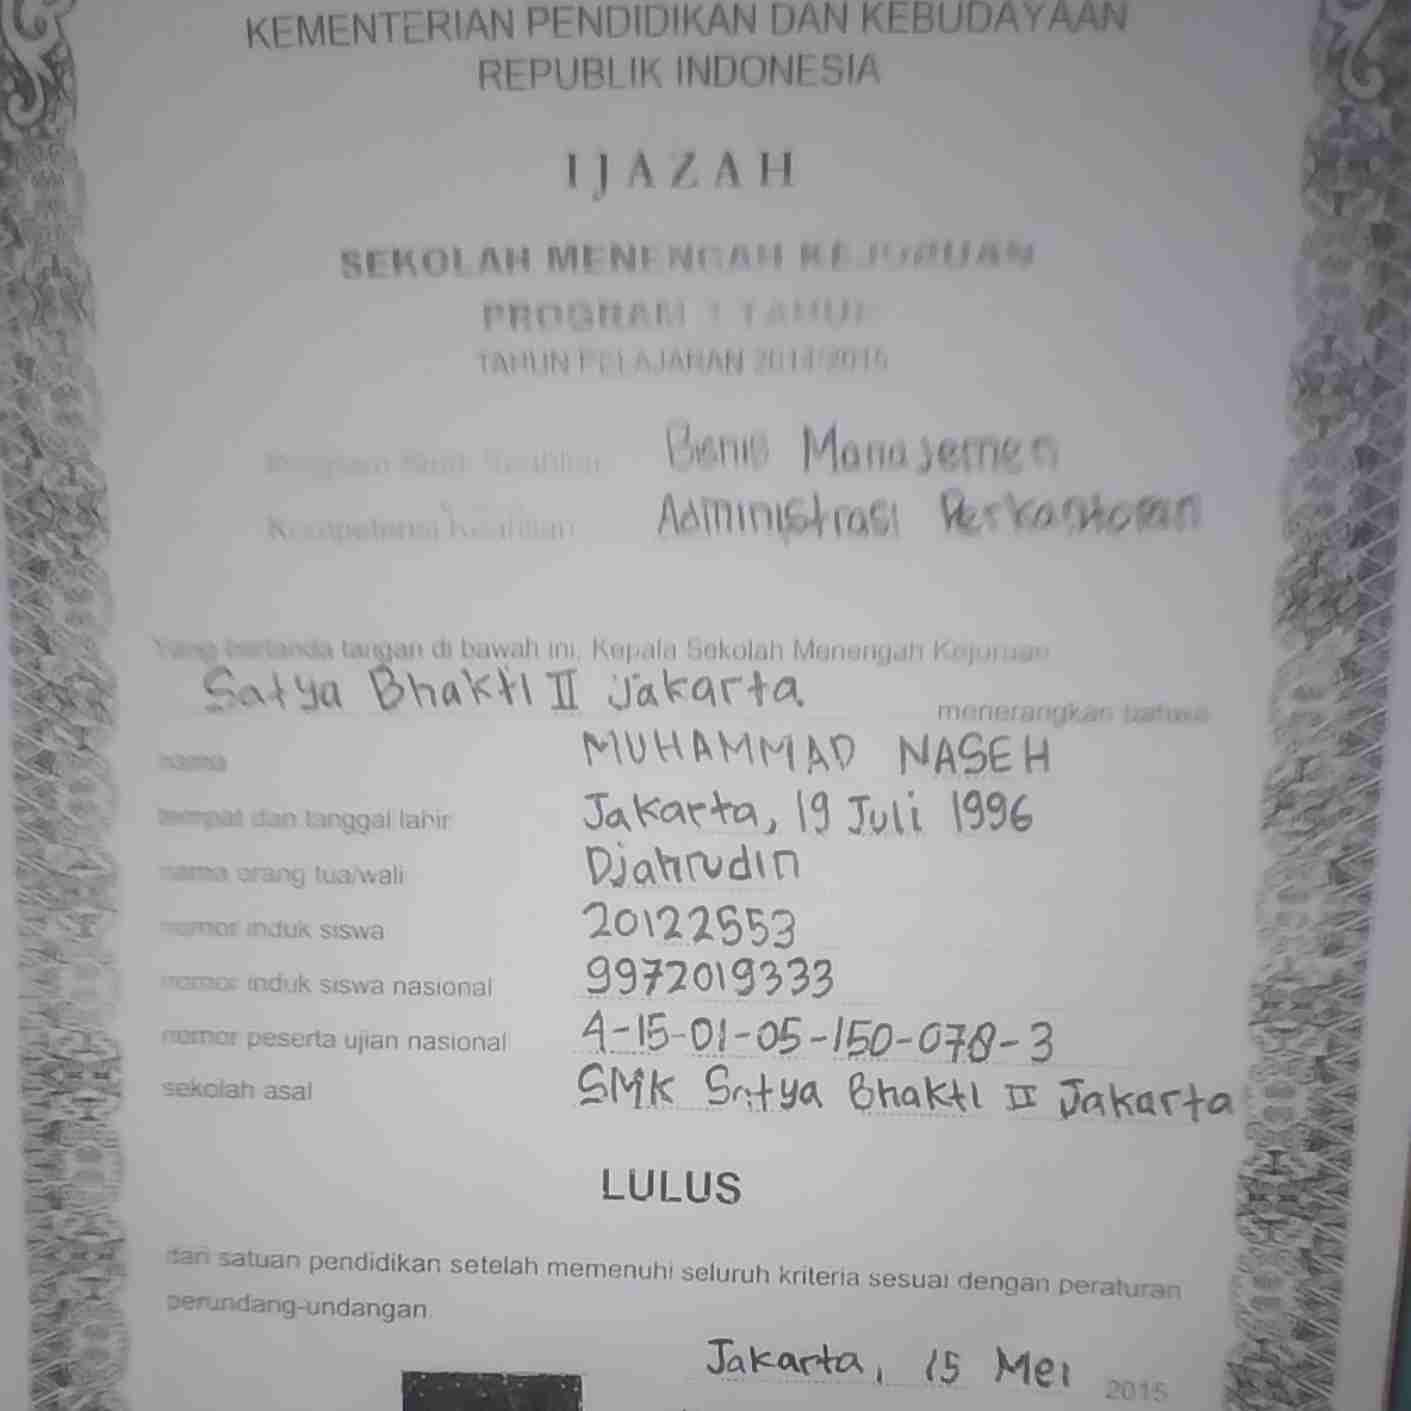 KEMENTERIAN PENDIDIKAN DAN KEBUDAYAAN
REPUBLIK INDONESIA
IJAZAH
SEKOLAH MENENGAH KEJURUAN
PROGRAM TAHUN
TAHUN PELAJARAN 2014/2015
Program Studi Keahlian Bisnis Manajemen
Kompetensi Keahlian Administrasi Perkantoran
Yang bertanda tangan di bawah ini, Kepala Sekolah Menengah Kejuruan
Satya Bhakti II Jakarta menerangkan bahwa
nama MUHAMMAD NASEH
tempat dan tanggal lahir Jakarta, 19 Juli 1996
nama orang tua/wali Djahrudin
nomor induk siswa 20122553
nomor induk siswa nasional 9972019333
nomor peserta ujian nasional 4-15-01-05-150-078-3
sekolah asal SMK Satya Bhakti II Jakarta
LULUS
dari satuan pendidikan setelah memenuhi seluruh kriteria sesuai dengan peraturan
perundang-undangan.
Jakarta, 15 Mei 2015